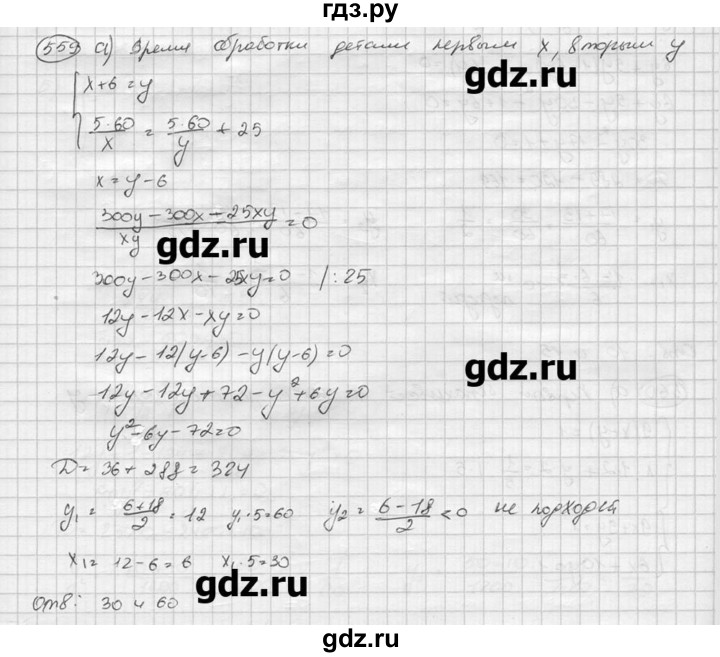 гдз.ру
559 а) Время обработки детали первым x, вторым y
gdz.ru
x+6=y
5·60/x = 5·60/y + 25
x = y-6
(300y-300x-25xy)/xy = 0
gdz.ru
300y-300x-25xy=0 /:25
12y-12x-xy=0
12y-12(y-6)-y(y-6)=0
gdz.ru
12y-12y+72-y²+6y=0
y²-6y-72=0
D=36+288=324
y₁=(6+18)/2=12 y₁·5=60 y₂=(6-18)/2<0 не подходят
x₁=12-6=6 x₁·5=30
gdz.ru
Отв: 30 и 60
gdz.ru